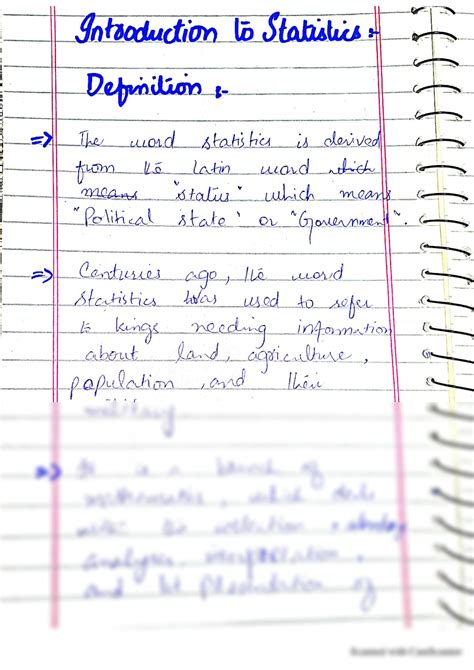 Introduction to Statistics :-
Definition :-
⇒ The word statistics is derived
from the Latin word which
means "status" which means
"Political state' or "Government".
⇒ Centuries ago, the word
Statistics was used to refer
to kings needing information
about land, agriculture,
population, and their
military.
⇒ It is a branch of
mathematics, which deals
with the collection,
analysis, interpretation,
and presentation of
Scanned with CamScanner